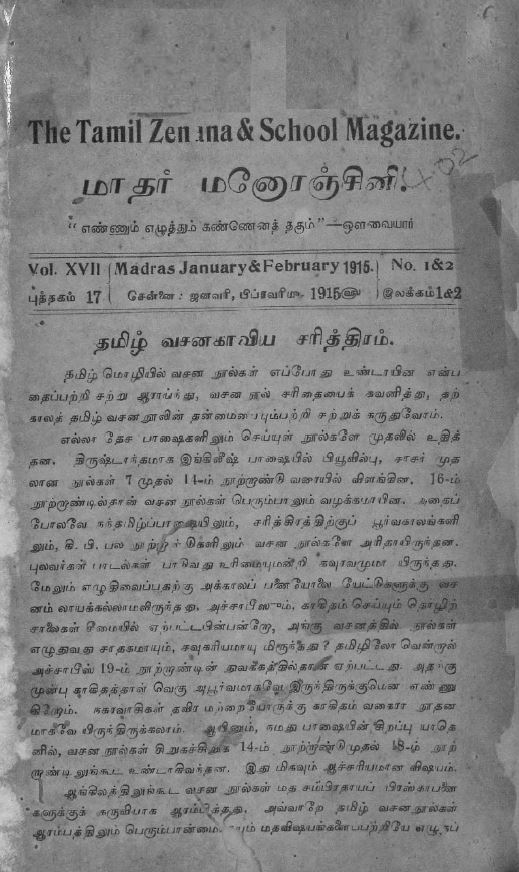 The Tamil Zenana & School Magazine.
மாதர் மனோரஞ்சினி.
402
"எண்ணும் எழுத்தும் கண்ணெனத் தகும்"—ஔவையார்
Vol. XVII Madras January & February 1915. No. 1&2
புத்தகம் 17 சென்னை: ஜனவரி, பிப்ரவரிமீ 1915௵ இலக்கம் 1&2
தமிழ் வசனகாவிய சரித்திரம்.
தமிழ் மொழியில் வசன நூல்கள் எப்போது உண்டாயின என்ப
தைப்பற்றி சற்று ஆராய்ந்து, வசன நூல் சரிதையைக் கவனித்து, தற்
காலத் தமிழ் வசனநூலின் தன்மையையும்பற்றி சற்றுக் கருதுவோம்.
எல்லா தேச பாஷைகளிலும் செய்யுள் நூல்களே முதலில் உதித்
தன. திருஷ்டார்தமாக இங்கிலீஷ் பாஷையில் பியூவில்பு, சாசர் முத
லான நூல்கள் 7 முதல் 14-ம் நூற்றாண்டு வரையில் விளங்கின. 16-ம்
நூற்றாண்டில்தான் வசன நூல்கள் பெரும்பாலும் வழக்கமாயின. அதைப்
போலவே நந்தமிழ்ப்பாஷையிலும், சரித்திரத்திற்குப் பூர்வகாலங்களி
லும், கி. பி. பல நூற்றாண்டுகளிலும் வசன நூல்களே அரிதாயிருந்தன.
புலவர்கள் பாடல்கள் பாவெது உரிமையுமன்றி கவுரவமுமா யிருந்தது.
மேலும் எழுதிவைப்பதற்கு அக்காலப் பனையோலை யேட்டுகளுக்கு வச
னம் லாயக்கல்லாமலிருந்தது. அச்சாபீஸும், காகிதம் செய்யும் தொழிற்
சாலைகள் சீமையில் ஏற்பட்டபின்பன்றோ, அங்கு வசனத்தில் நூல்கள்
எழுதுவது சாதகமாயும், சவுகரியமாயு மிருந்தது? தமிழிலோ வென்றால்
அச்சாபீஸ் 19-ம் நூற்றாண்டின் துவக்கத்தில்தான் ஏற்பட்டது. அதற்கு
முன்பு காகிதந்தான் வெகு அபூர்வமாகவே இருந்திருக்குமென எண்ணு
கிறோம். நகரவாசிகள் தவிர மற்றையோருக்கு காகிதம் வகையரா நூதன
மாகவே யிருந்திருக்கலாம். ஆயினும், நமது பாஷையின் சிறப்பு யாதெ
னில், வசன நூல்கள் சிறுகச்சிறுக 14-ம் நூற்றாண்டுமுதல் 18-ம் நூற்
றாண்டிலுங்கூட உண்டாகிவந்தன. இது மிகவும் ஆச்சரியமான விஷயம்.
ஆங்கிலத்திலுங்கூட வசன நூல்கள் மத சம்பிரதாயப் பிரஸ்தாபனை
களுக்குக் கருவியாக ஆரம்பித்தது. அவ்வாறே தமிழ் வசனநூல்கள்
ஆரம்பத்திலும் பெரும்பான்மையும் மதவிஷயங்களைப்பற்றியே எழுதப்